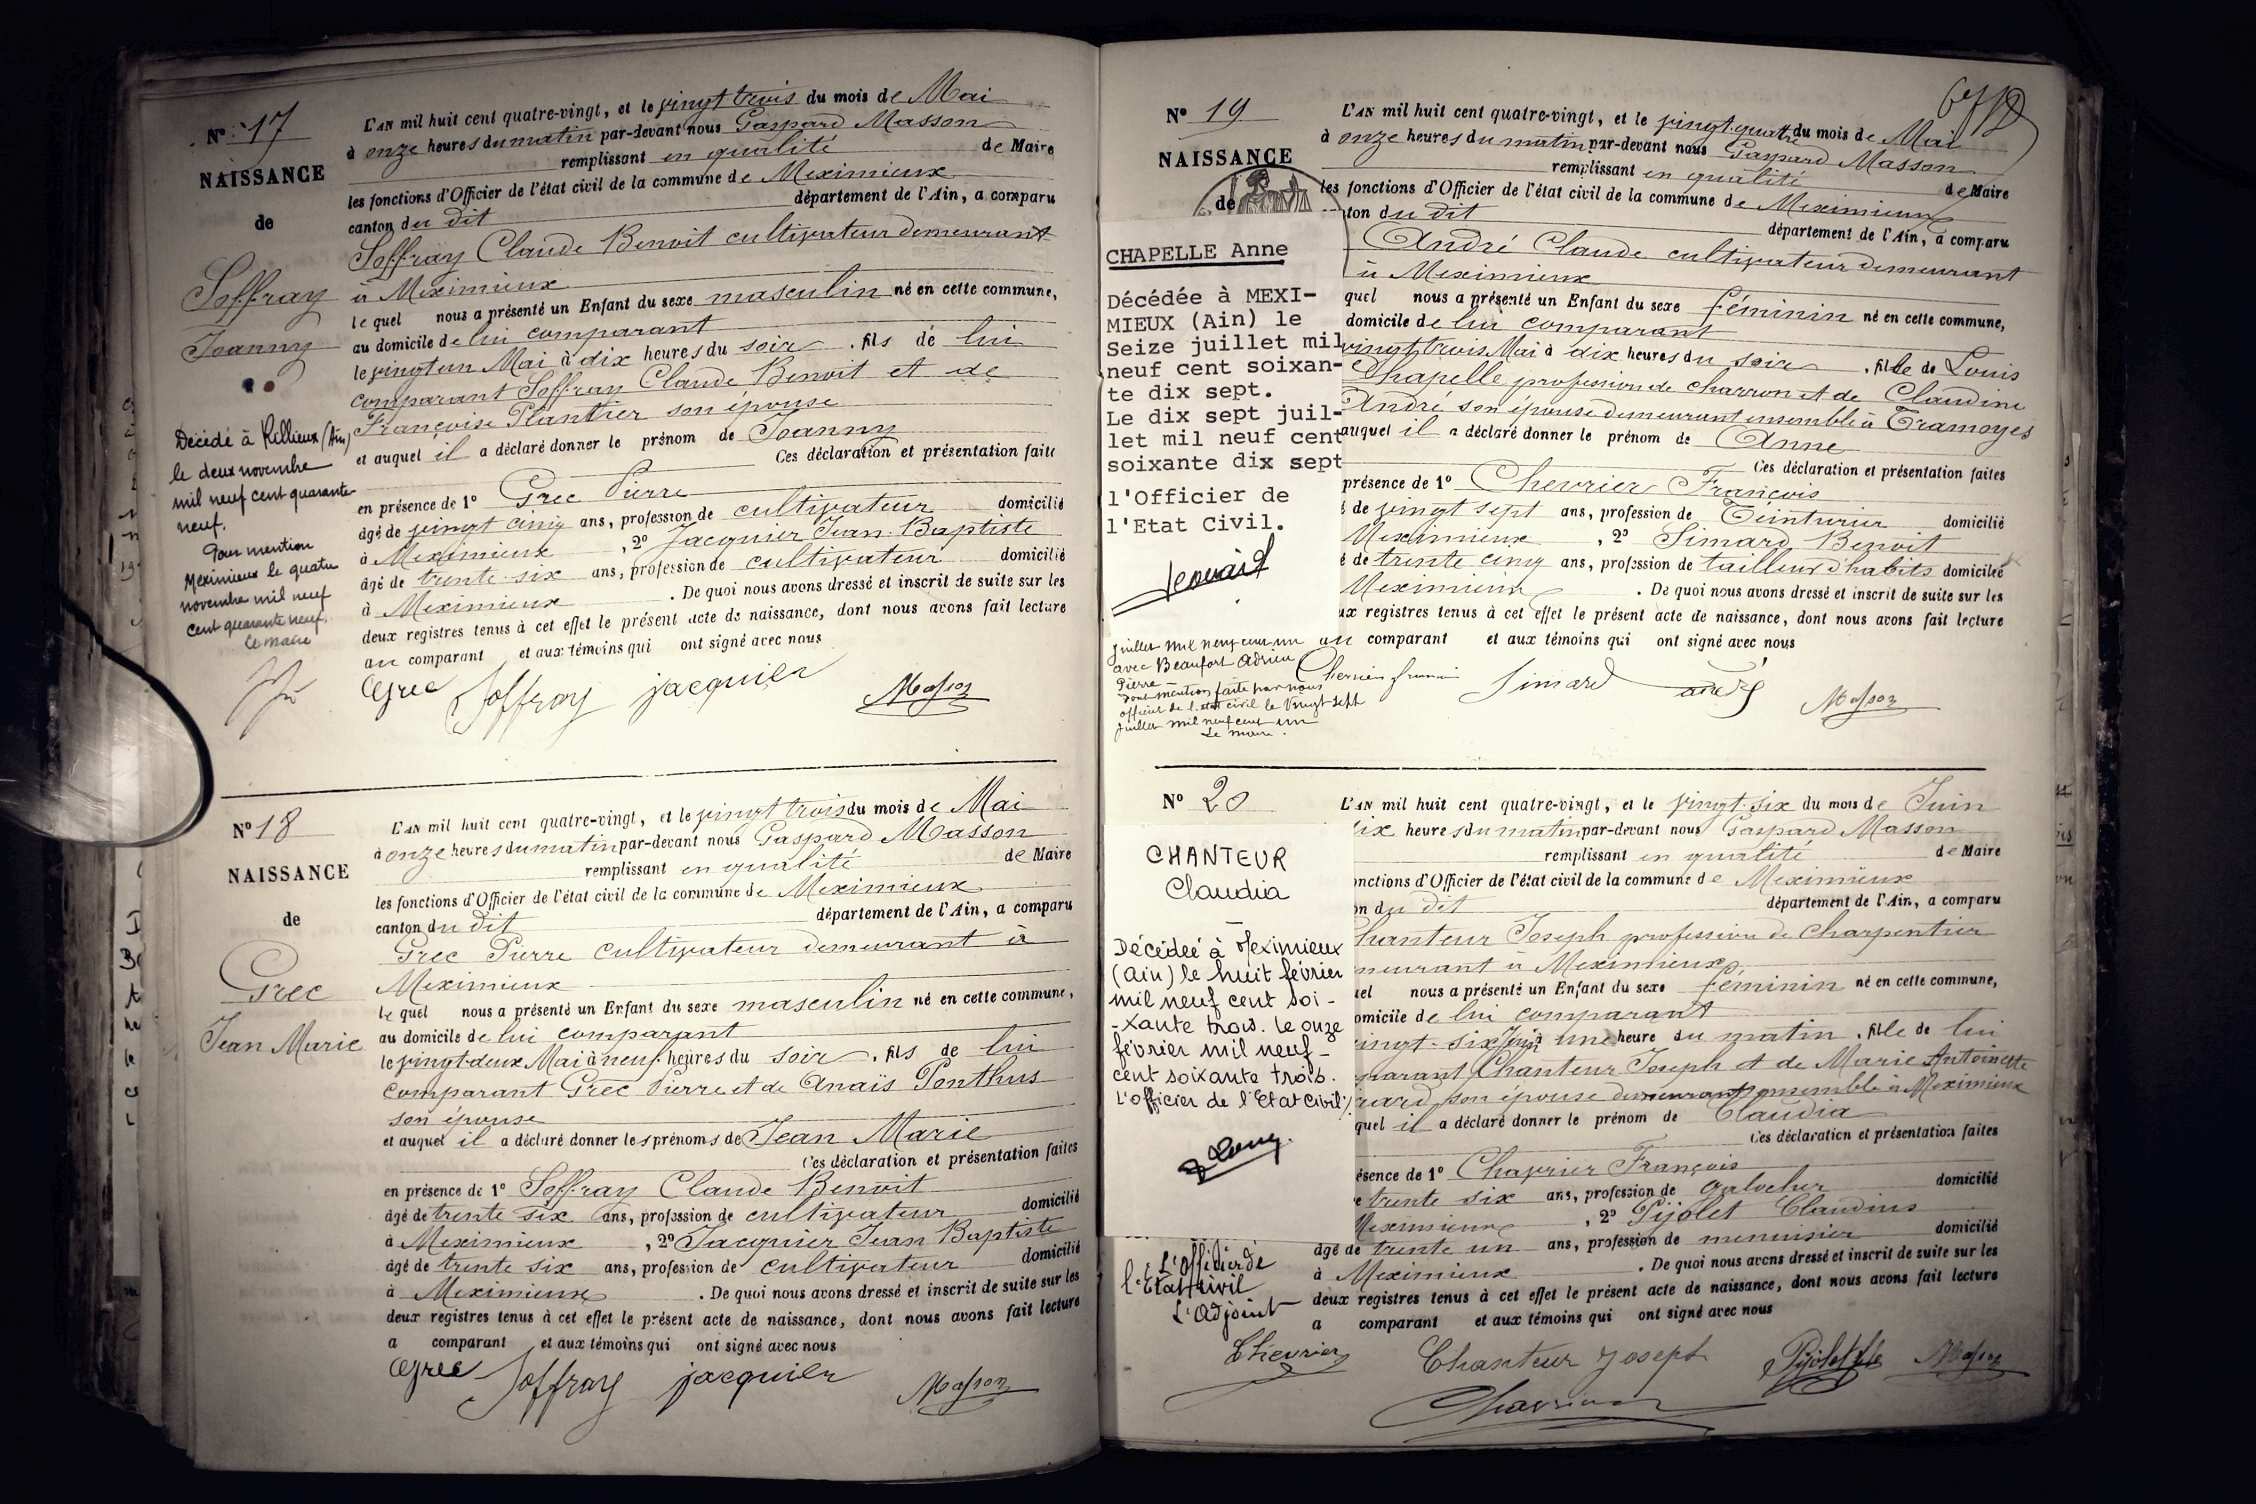 N° 17
NAISSANCE
de
Joffray
Joanny
Décédé à Rillieux (Ain)
le deux novembre
mil neuf cent quarante
neuf.
Pour mention
Meximieux le quatre
novembre mil neuf
cent quarante neuf.
Le Maire
L'AN mil huit cent quatre-vingt, et le vingt trois du mois de Mai
à onze heures du matin par-devant nous Gaspard Masson
remplissant en qualité de Maire
les fonctions d'Officier de l'état civil de la commune de Meximieux
canton du dit département de l'Ain, a comparu
Joffray Claude Benoit cultivateur demeurant
à Meximieux
le quel nous a présenté un Enfant du sexe masculin né en cette commune,
au domicile de lui comparant
le vingt un Mai à dix heures du soir . fils de lui
comparant Joffray Claude Benoit et de
Françoise Plantier son épouse
et auquel il a déclaré donner le prénom de Joanny
Ces déclaration et présentation faite
en présence de 1° Grec Pierre
âgé de vingt cinq ans, profession de cultivateur domicilié
à Meximieux , 2° Jacquier Jean Baptiste
âgé de trente six ans, profession de cultivateur domicilié
à Meximieux . De quoi nous avons dressé et inscrit de suite sur les
deux registres tenus à cet effet le présent acte de naissance, dont nous avons fait lecture
au comparant et aux témoins qui ont signé avec nous
Grec Joffray jacquier Masson
N° 18
NAISSANCE
de
Grec
Jean Marie
L'AN mil huit cent quatre-vingt, et le vingt trois du mois de Mai
à onze heures du matin par-devant nous Gaspard Masson
remplissant en qualité de Maire
les fonctions d'Officier de l'état civil de la commune de Meximieux
canton du dit département de l'Ain, a comparu
Grec Pierre cultivateur demeurant à
Meximieux
le quel nous a présenté un Enfant du sexe masculin né en cette commune,
au domicile de lui comparant
le vingt-deux Mai à neuf heures du soir . fils de lui
comparant Grec Pierre et de Anaïs Ponthus
son épouse
et auquel il a déclaré donner les prénoms de Jean Marie
Ces déclaration et présentation faites
en présence de 1° Joffray Claude Benoit
âgé de trente six ans, profession de cultivateur domicilié
à Meximieux , 2° Jacquier Jean Baptiste
âgé de trente six ans, profession de cultivateur domicilié
à Meximieux . De quoi nous avons dressé et inscrit de suite sur les
deux registres tenus à cet effet le présent acte de naissance, dont nous avons fait lecture
a comparant et aux témoins qui ont signé avec nous
Grec Joffray jacquier Masson
N° 19
NAISSANCE
de
CHAPELLE Anne
Décédée à MEXI-
MIEUX (Ain) le
Seize juillet mil
neuf cent soixan-
te dix sept.
Le dix sept juil-
let mil neuf cent
soixante dix sept
l'Officier de
l'Etat Civil.
juillet mil neuf cent un
avec Beaufort Adrien
Pierre
dont mention faite par nous
officier de l'état civil le vingt sept
juillet mil neuf cent un
Le maire.
L'AN mil huit cent quatre-vingt, et le vingt-quatre du mois de Mai
à onze heures du matin par-devant nous Gaspard Masson
remplissant en qualité de Maire
les fonctions d'Officier de l'état civil de la commune de Meximieux
ton du dit département de l'Ain, a comparu
André Claude cultivateur demeurant
à Meximieux
quel nous a présenté un Enfant du sexe féminin né en cette commune,
domicile de lui comparant
vingt trois Mai à dix heures du soir . fille de Louis
Chapelle profession de charron et de Claudine
André son épouse demeurant ensemble à Tramoyes
auquel il a déclaré donner le prénom de Anne
Ces déclaration et présentation faites
présence de 1° Chevrier François
é de vingt sept ans, profession de Teinturier domicilié
Meximieux , 2° Simard Benoit
é de trente cinq ans, profession de tailleur d'habits domicilié
Meximieux . De quoi nous avons dressé et inscrit de suite sur les
ux registres tenus à cet effet le présent acte de naissance, dont nous avons fait lecture
au comparant et aux témoins qui ont signé avec nous
Simard andré Masson
N° 20
CHANTEUR
Claudia
Décédée à Meximieux
(Ain) le huit février
mil neuf cent soi-
-xante trois. Le onze
février mil neuf-
cent soixante trois.
L'officier de l'Etat civil
L'Officier de
l'Etat Civil
L'Adjoint
L'AN mil huit cent quatre-vingt, et le vingt-six du mois de Juin
ix heures du matin par-devant nous Gaspard Masson
remplissant en qualité de Maire
onctions d'Officier de l'état civil de la commune de Meximieux
on du dit département de l'Ain, a comparu
hanteur Joseph profession de charpentier
meurant à Meximieux
uel nous a présenté un Enfant du sexe féminin né en cette commune,
omicile de lui comparant
ingt-six Juin à une heure du matin . fille de lui
parant Chanteur Joseph et de Marie Antoinette
son épouse demeurant ensemble à Meximieux
quel il a déclaré donner le prénom de Claudia
Ces déclaration et présentation faites
ésence de 1° Chavrier François
e trente six ans, profession de galocher domicilié
Meximieux , 2° Pijolet Claudius
âgé de trente un ans, profession de menuisier domicilié
à Meximieux . De quoi nous avons dressé et inscrit de suite sur les
deux registres tenus à cet effet le présent acte de naissance, dont nous avons fait lecture
a comparant et aux témoins qui ont signé avec nous
Chevrier Chanteur Joseph Masson